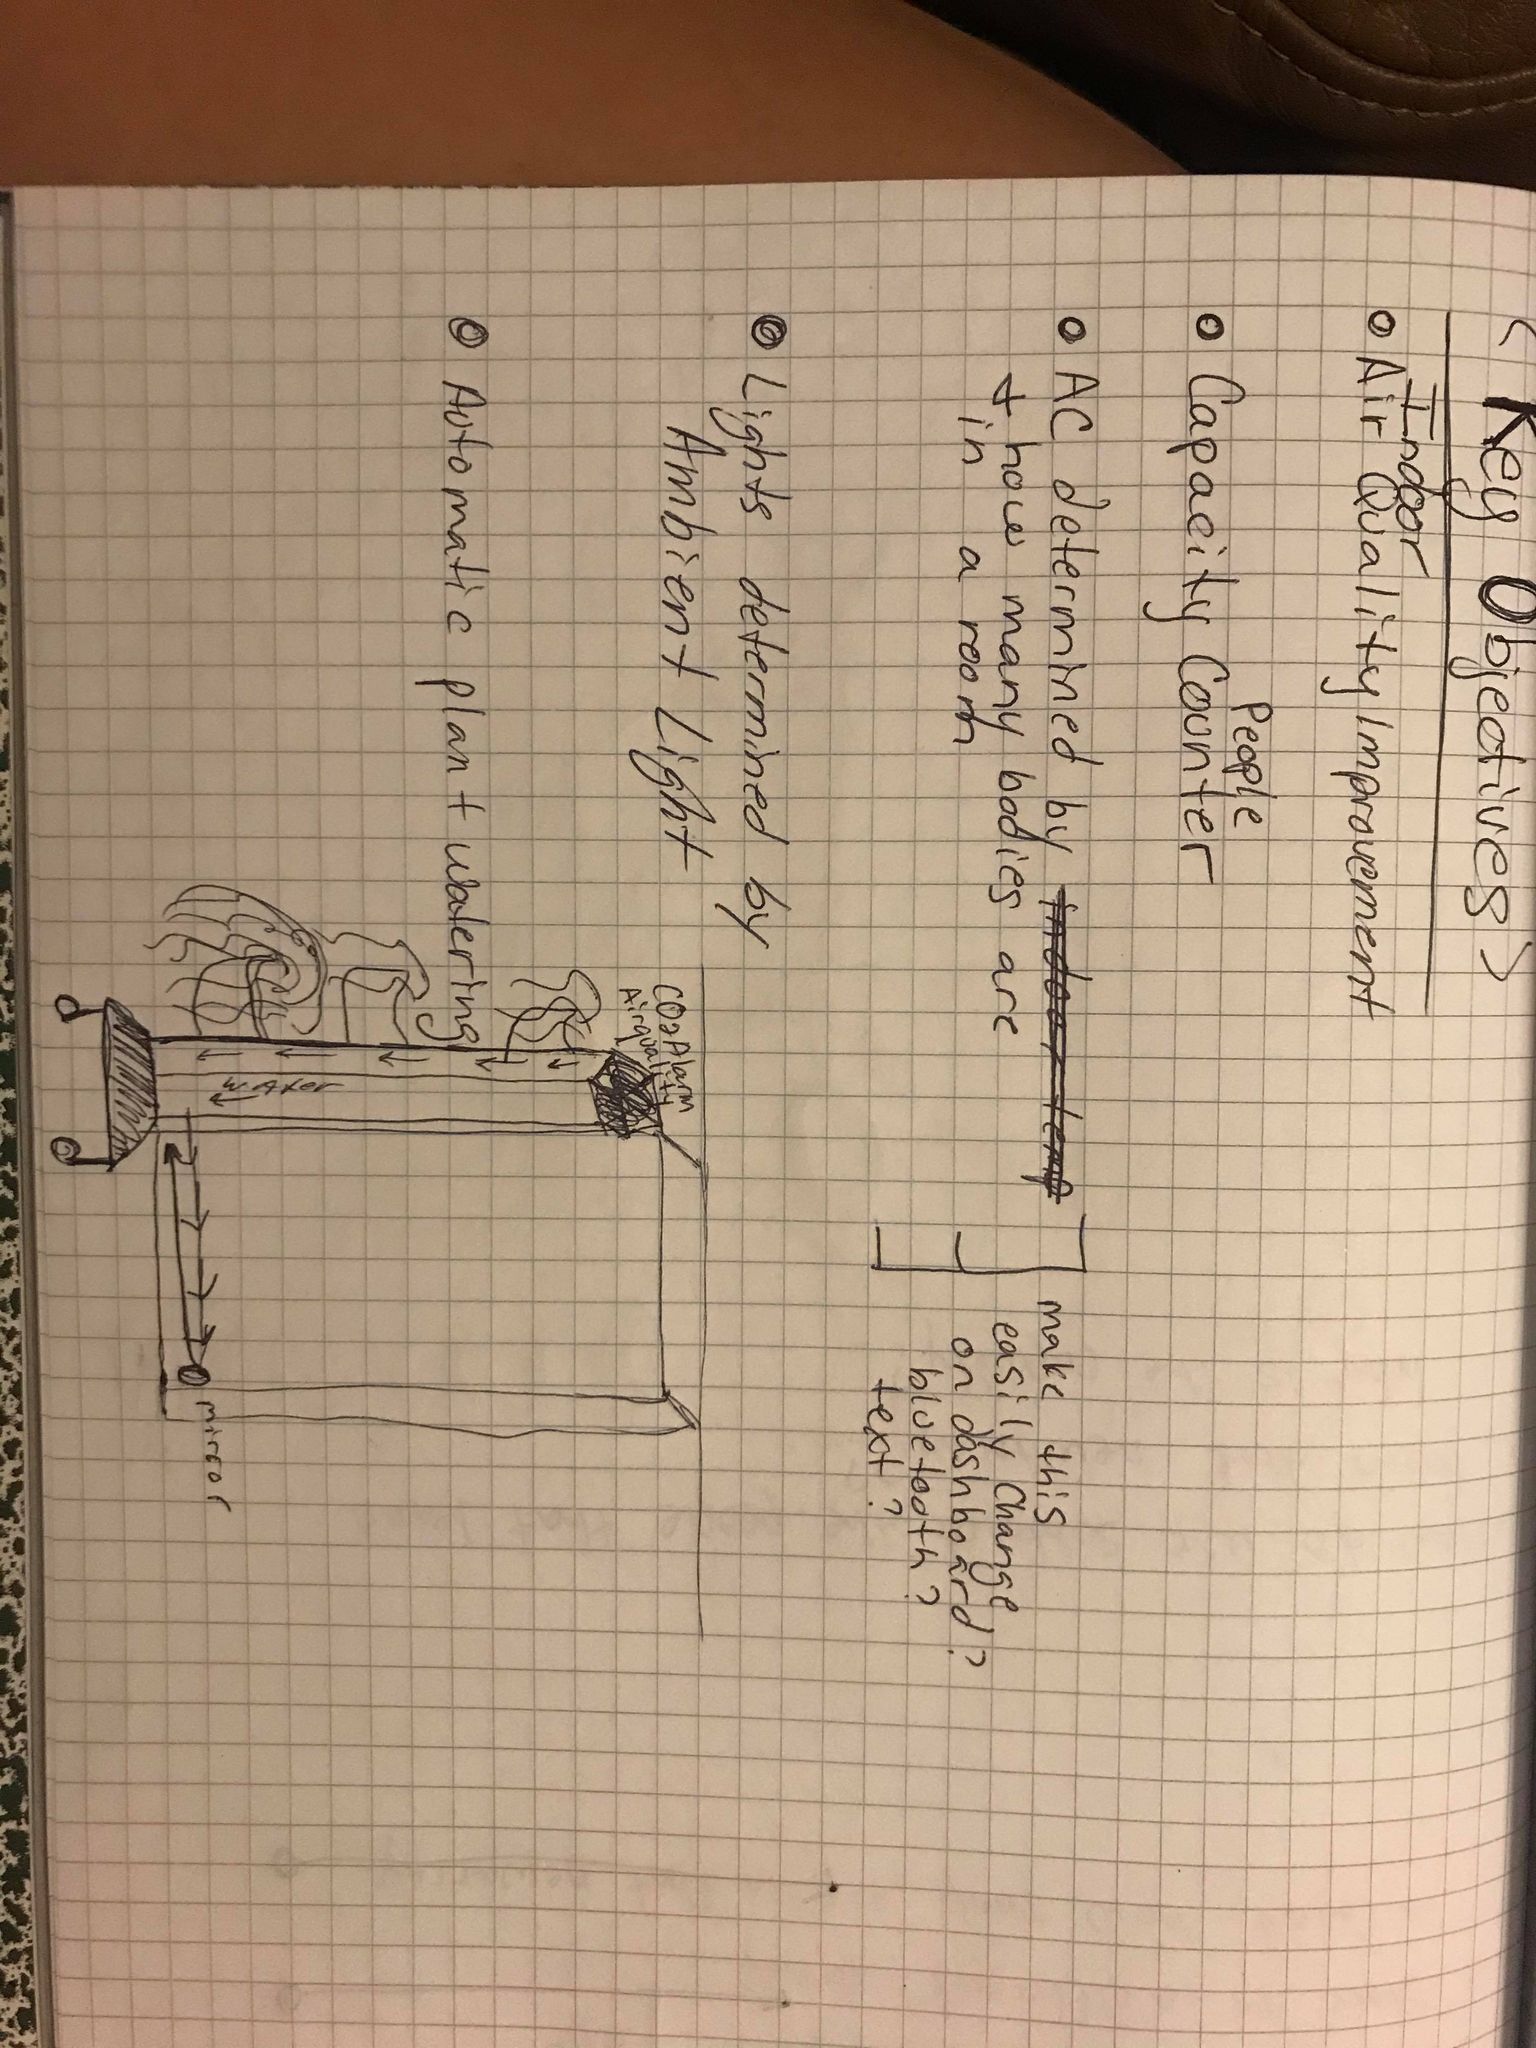 < Key Objectives >
Indoor
Air Quality Improvement
People
Capacity Counter
AC determined by indoor temp
+ how many bodies are
in a room
make this
easily change
on dashboard?
bluetooth?
text?
Lights determined by
Ambient Light
Automatic plant watering
CO2 Alarm
Air quality
water
mirror